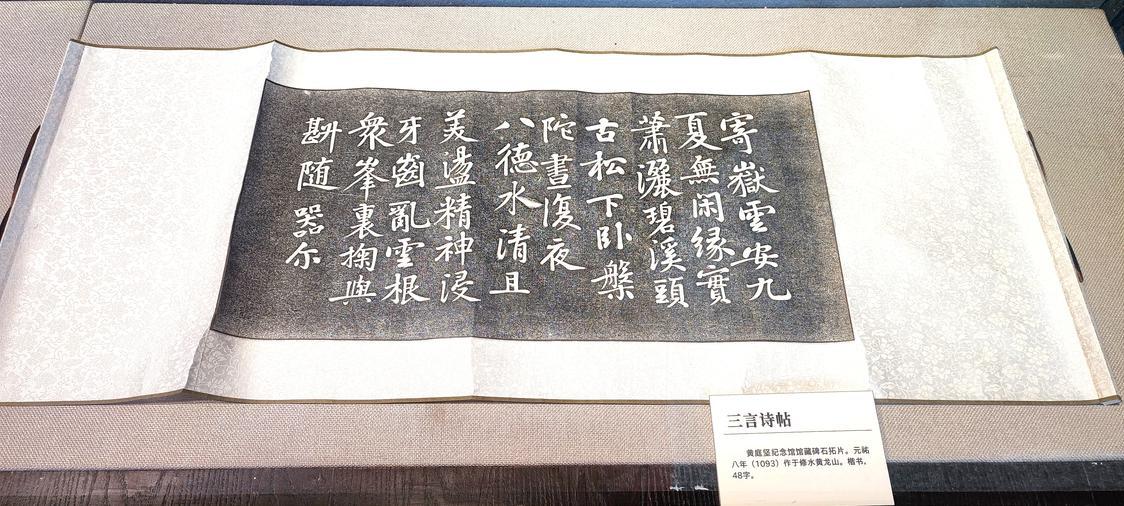 寄嶽雲安九
夏無閑緣實
蕭灑碧溪頭
古松下卧槃
陀晝復夜
八德水清且
美盪精神浸
牙齒亂雲根
衆峯裏掬與
斟随器尔
三言诗帖
黄庭坚纪念馆馆藏碑石拓片。元祐
八年（1093）作于修水黄龙山。楷书，
48字。